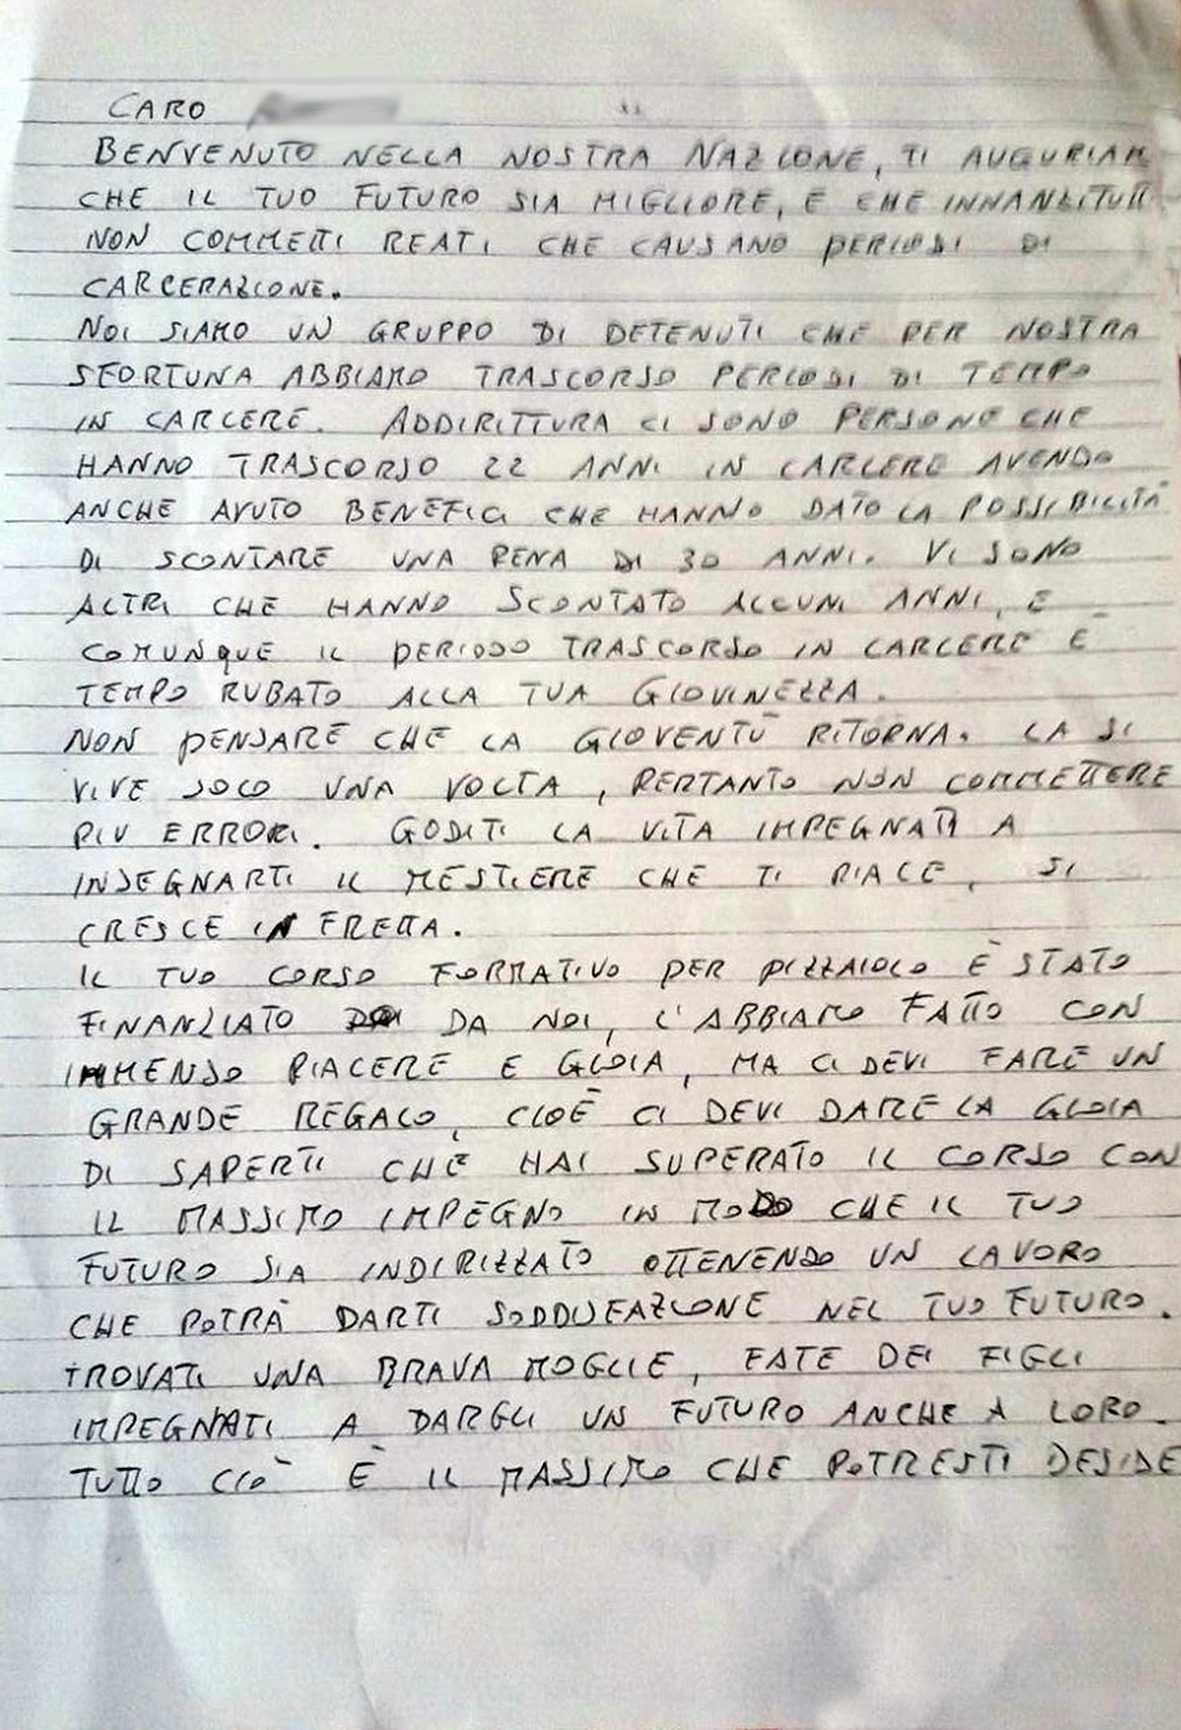 CARO
BENVENUTO NELLA NOSTRA NAZIONE, TI AUGURIAM
CHE IL TUO FUTURO SIA MIGLIORE, E CHE INNANZITUTT
NON COMMETTI REATI CHE CAUSANO PERIODI DI
CARCERAZIONE.
NOI SIAMO UN GRUPPO DI DETENUTI CHE PER NOSTRA
SFORTUNA ABBIAMO TRASCORSO PERIODI DI TEMPO
IN CARCERE. ADDIRITTURA CI SONO PERSONE CHE
HANNO TRASCORSO 22 ANNI IN CARCERE AVENDO
ANCHE AVUTO BENEFICI CHE HANNO DATO LA POSSIBILITÀ
DI SCONTARE UNA PENA DI 30 ANNI. VI SONO
ALTRI CHE HANNO SCONTATO ALCUNI ANNI, E
COMUNQUE IL PERIODO TRASCORSO IN CARCERE È
TEMPO RUBATO ALLA TUA GIOVINEZZA.
NON PENSARE CHE LA GIOVENTÙ RITORNA. LA SI
VIVE SOLO UNA VOLTA, PERTANTO NON COMMETTERE
PIU ERRORI. GODITI LA VITA IMPEGNATI A
INSEGNARTI IL MESTIERE CHE TI PIACE, SI
CRESCE IN FRETTA.
IL TUO CORSO FORMATIVO PER PIZZAIOLO È STATO
FINANZIATO DA NOI, L'ABBIAMO FATTO CON
IMMENSO PIACERE E GIOIA, MA CI DEVI FARE UN
GRANDE REGALO, CIOÈ CI DEVI DARE LA GIOIA
DI SAPERTI CHE HAI SUPERATO IL CORSO CON
IL MASSIMO IMPEGNO IN MODO CHE IL TUO
FUTURO SIA INDIRIZZATO OTTENENDO UN LAVORO
CHE POTRÀ DARTI SODDISFAZIONE NEL TUO FUTURO.
TROVATI UNA BRAVA MOGLIE, FATE DEI FIGLI
IMPEGNATI A DARGLI UN FUTURO ANCHE A LORO.
TUTTO CIÒ È IL MASSIMO CHE POTRESTI DESIDE